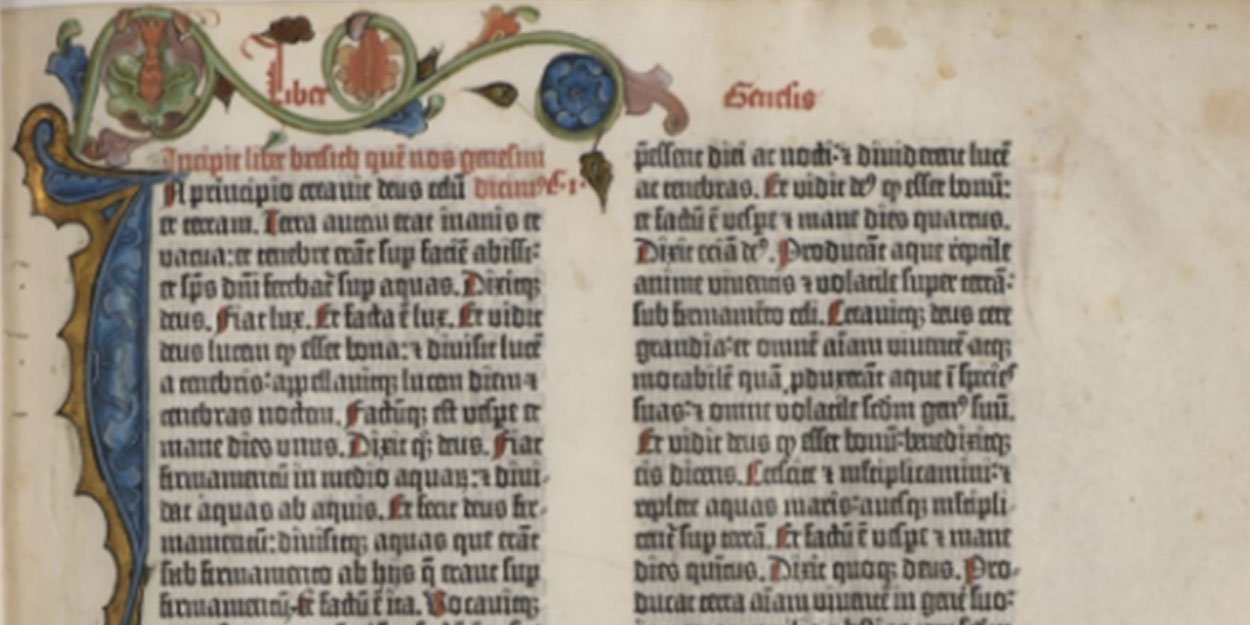 Liber
Genesis
Incipit liber bresith quē nos genesim
In principio creavit deus celū dicimꝰ
et terram. Terra autem erat inanis et
vacua: et tenebre erāt sup faciē abissi:
et sp̄s dn̄i ferebat̄ sup aquas. Dixitqꝫ
deus. Fiat lux. Et facta ē lux. Et vidit
deus lucem ꝙ esset bona: ⁊ divisit lucē
a tenebris: appellavitqꝫ lucem diem ⁊
tenebras noctem. Factūqꝫ est vespe et
mane dies unus. Dixit qꝫ deus. Fiat
firmamentū in medio aquaꝝ: ⁊ divi-
dat aquas ab aquis. Et fecit deus fir-
mamentū: divisitqꝫ aquas que erāt
sub firmamento ab hijs q̄ erant sup
firmamentū: Et factū ē ita. Vocavitqꝫ
p̄essent diei ac nocti: ⁊ dividerent lucē
ac tenebras. Et vidit deꝰ ꝙ esset bonū:
et factū ē vespe ⁊ mane dies quartus.
Dixit eciā deꝰ. Producāt aque reptile
anime viventis ⁊ volatile super terrā:
sub firmamēto celi. Creavitqꝫ deus cete
grandia: et omnē aīam viventē atqꝫ
motabilē quā ꝓduxerāt aque ī species
suas: ⁊ omne volatile scdm genꝰ suū.
Et vidit deus ꝙ esset bonū: benedixitqꝫ
eis dicens. Crescite ⁊ mltiplicamini: ⁊
replete aquas maris: avesqꝫ mltipli-
cent̄ sup terrā. Et factū ē vespe ⁊ mane
dies quītus. Dixit quoqꝫ deus. Pro-
ducat terra aīam viventē in genē suo: